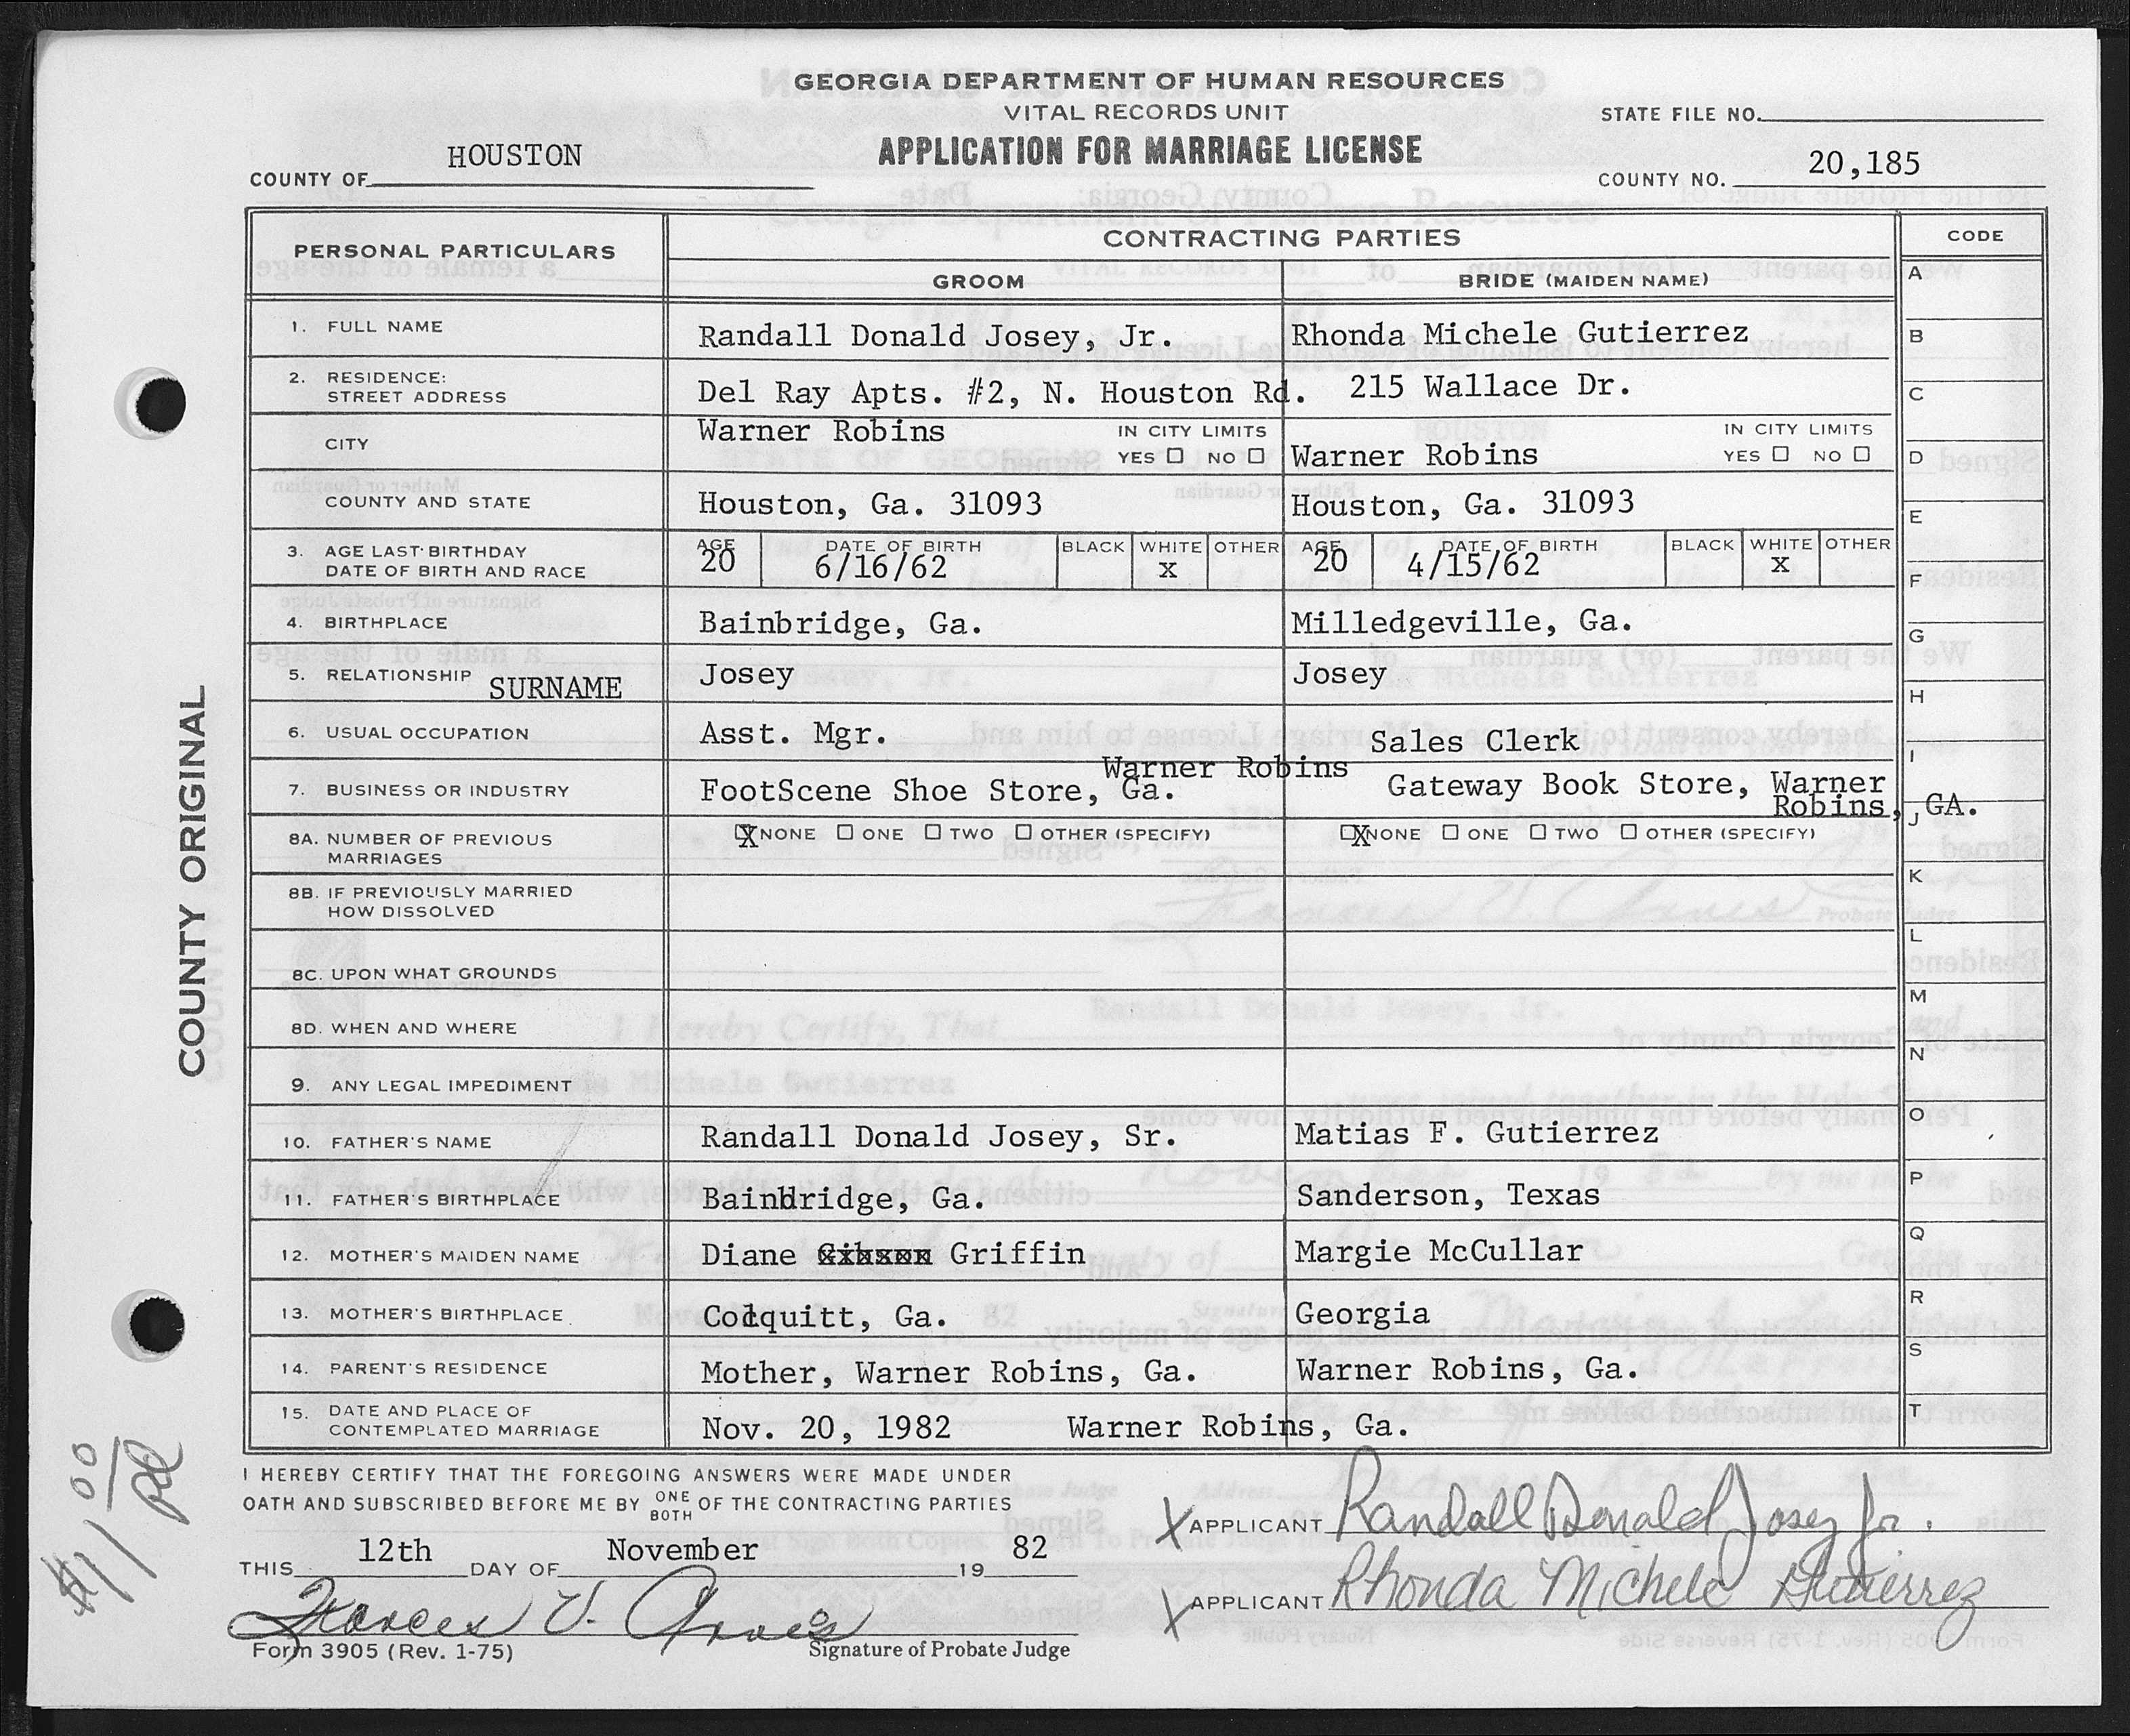 GEORGIA DEPARTMENT OF HUMAN RESOURCES
VITAL RECORDS UNIT
APPLICATION FOR MARRIAGE LICENSE
STATE FILE NO.
COUNTY OF HOUSTON
COUNTY NO. 20,185
PERSONAL PARTICULARS
CONTRACTING PARTIES
CODE
GROOM
BRIDE (MAIDEN NAME)
1. FULL NAME Randall Donald Josey, Jr. Rhonda Michele Gutierrez
2. RESIDENCE: STREET ADDRESS Del Ray Apts. #2, N. Houston Rd. 215 Wallace Dr.
CITY Warner Robins IN CITY LIMITS YES ☐ NO ☐ Warner Robins IN CITY LIMITS YES ☐ NO ☐
COUNTY AND STATE Houston, Ga. 31093 Houston, Ga. 31093
3. AGE LAST BIRTHDAY DATE OF BIRTH AND RACE AGE 20 DATE OF BIRTH 6/16/62 BLACK WHITE x OTHER AGE 20 DATE OF BIRTH 4/15/62 BLACK WHITE x OTHER
4. BIRTHPLACE Bainbridge, Ga. Milledgeville, Ga.
5. RELATIONSHIP SURNAME Josey Josey
6. USUAL OCCUPATION Asst. Mgr. Sales Clerk
7. BUSINESS OR INDUSTRY FootScene Shoe Store, Warner Robins Ga. Gateway Book Store, Warner Robins, GA.
8A. NUMBER OF PREVIOUS MARRIAGES X NONE ☐ ONE ☐ TWO ☐ OTHER (SPECIFY) X NONE ☐ ONE ☐ TWO ☐ OTHER (SPECIFY)
8B. IF PREVIOUSLY MARRIED HOW DISSOLVED
8C. UPON WHAT GROUNDS
8D. WHEN AND WHERE
9. ANY LEGAL IMPEDIMENT
10. FATHER'S NAME Randall Donald Josey, Sr. Matias F. Gutierrez
11. FATHER'S BIRTHPLACE Bainbridge, Ga. Sanderson, Texas
12. MOTHER'S MAIDEN NAME Diane Griffin Margie McCullar
13. MOTHER'S BIRTHPLACE Colquitt, Ga. Georgia
14. PARENT'S RESIDENCE Mother, Warner Robins, Ga. Warner Robins, Ga.
15. DATE AND PLACE OF CONTEMPLATED MARRIAGE Nov. 20, 1982 Warner Robins, Ga.
A
B
C
D
E
F
G
H
I
J
K
L
M
N
O
P
Q
R
S
T
COUNTY ORIGINAL
$11.00 pd
I HEREBY CERTIFY THAT THE FOREGOING ANSWERS WERE MADE UNDER
OATH AND SUBSCRIBED BEFORE ME BY ONE BOTH OF THE CONTRACTING PARTIES
THIS 12th DAY OF November 19 82
X APPLICANT Randall Donald Josey Jr.
X APPLICANT Rhonda Michele Gutierrez
Frances V.
Form 3905 (Rev. 1-75)
Signature of Probate Judge